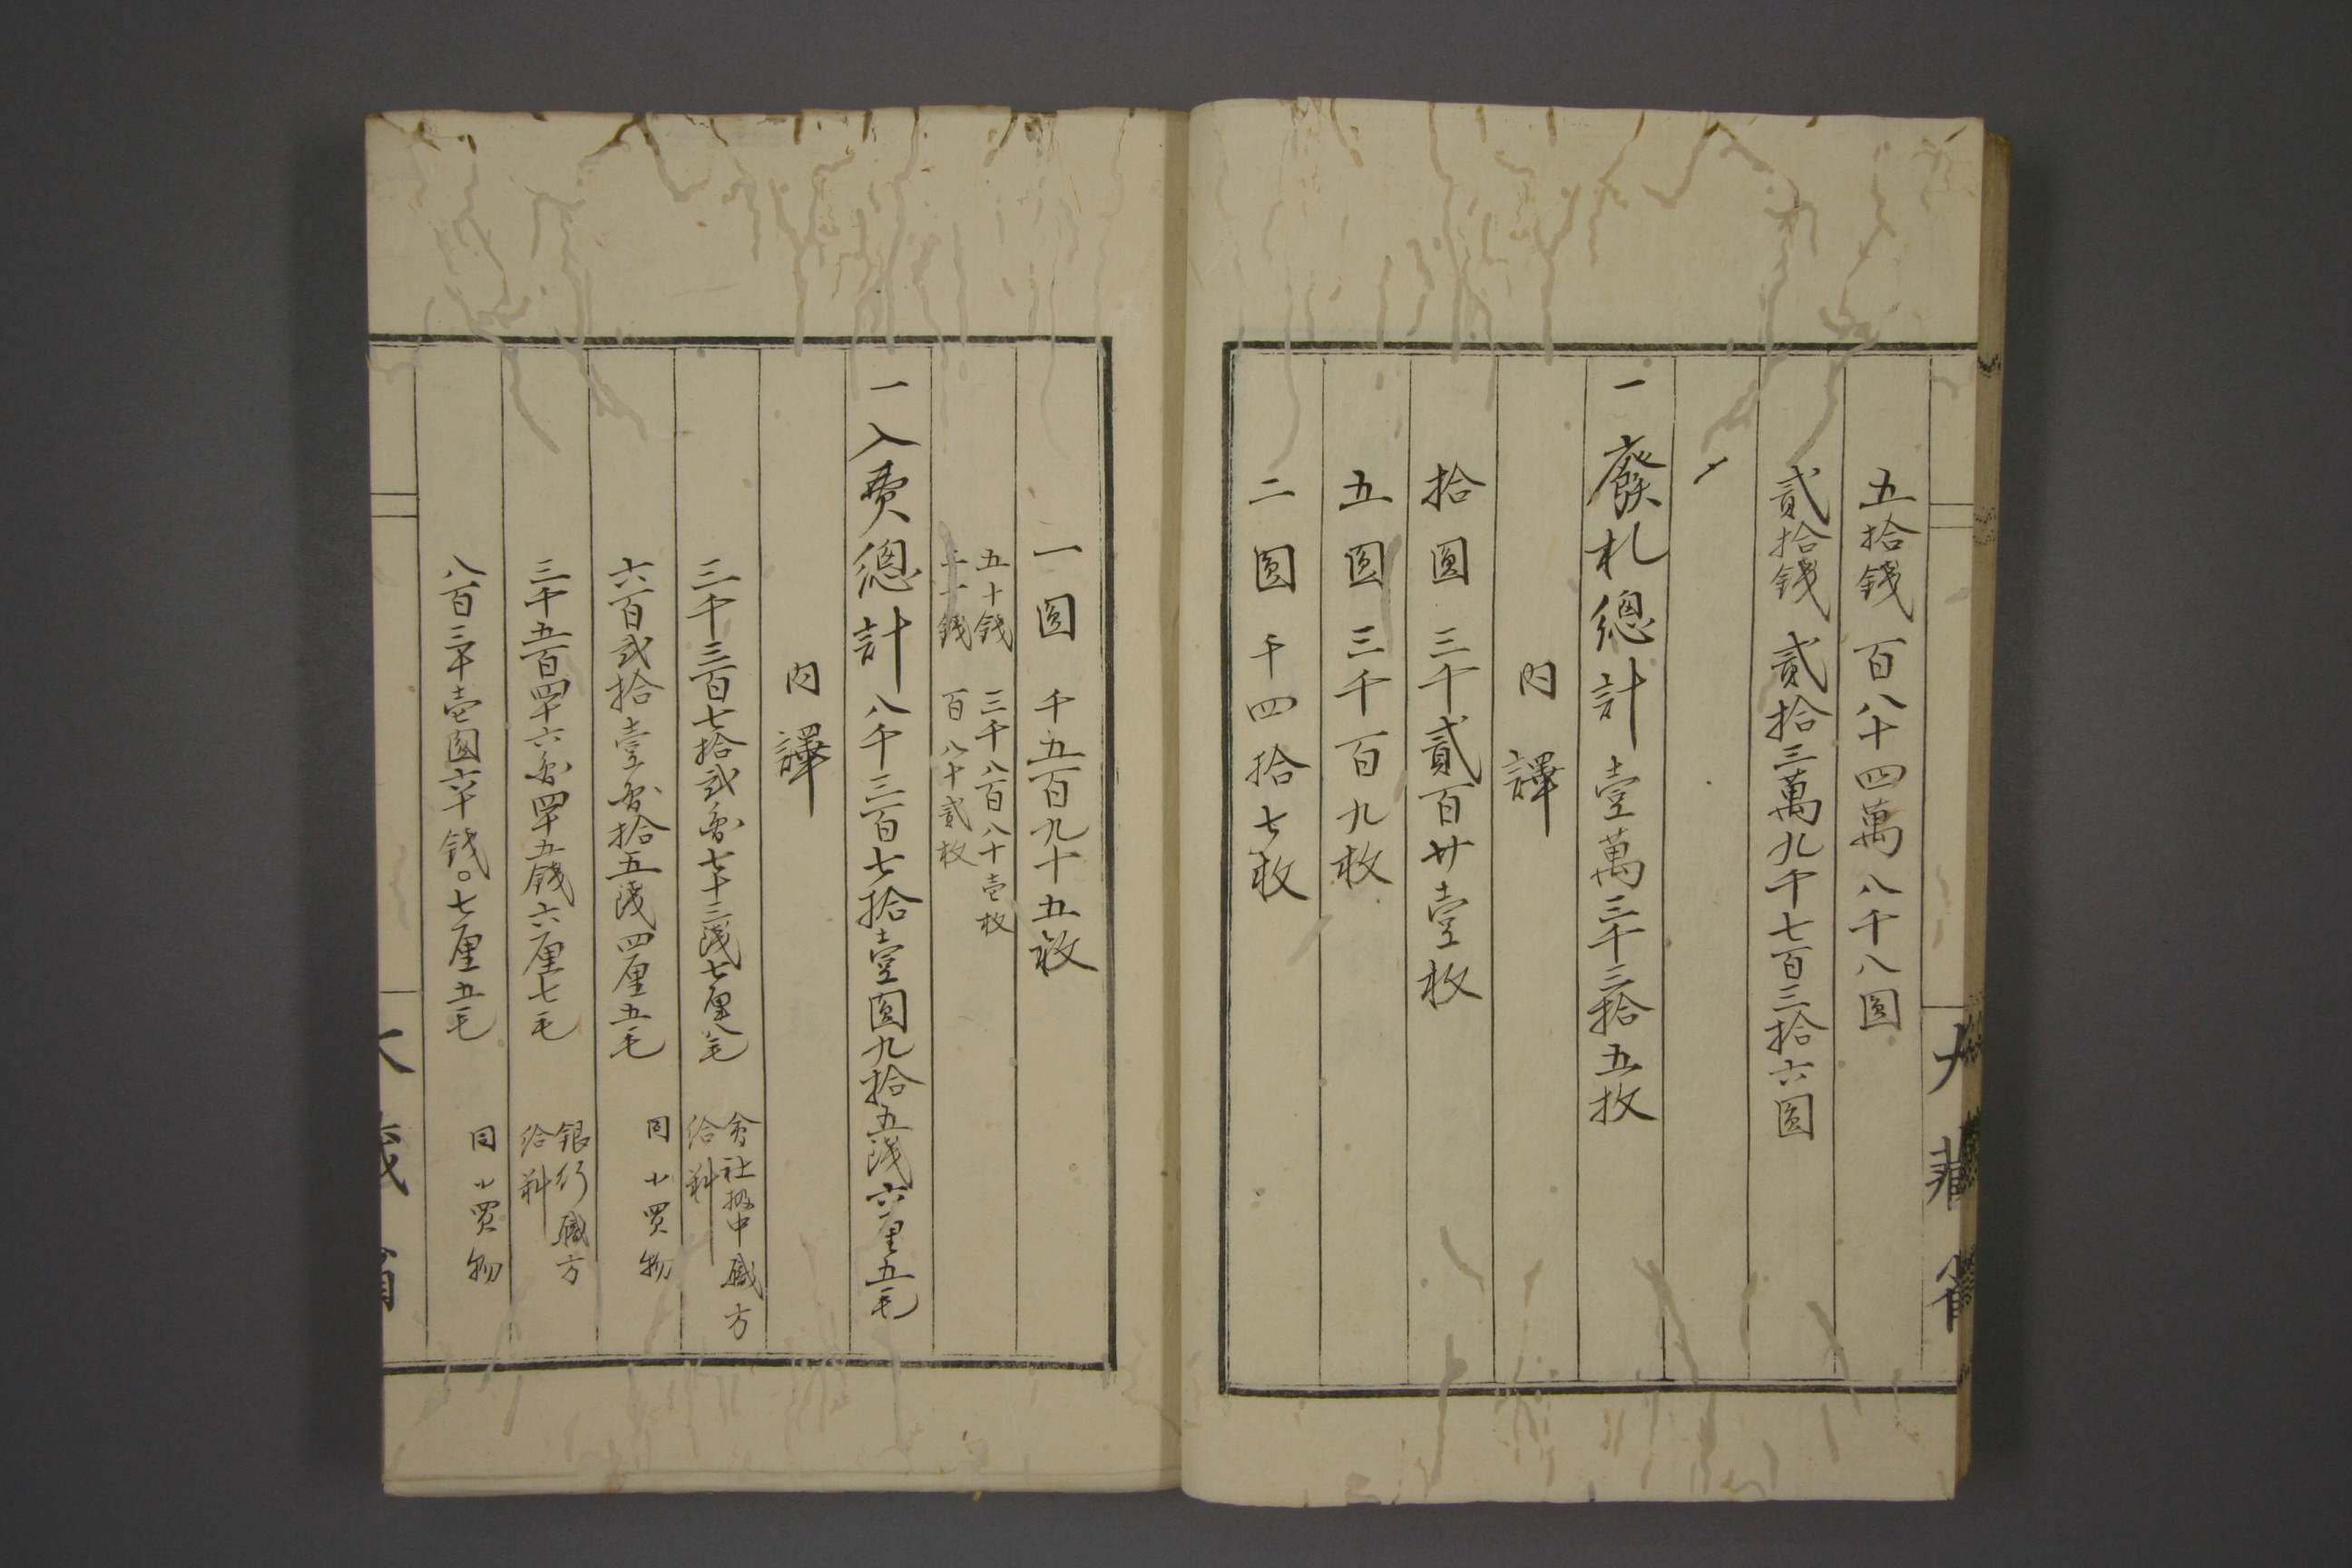 五拾錢 百八十四萬八千八圓
貳拾錢 貳拾三萬九千七百三拾六圓
一廢札總計 壹萬三千三拾五枚
内譯
拾圓 三千貳百廿壹枚
五圓 三千百九枚
二圓 千四拾七枚
大藏省
一圓 千五百九十五枚
五十錢 三千八百八十壱枚
二十錢 百八十貳枚
一入費總計 八千三百七拾壹圓九拾五錢六厘五毛
内譯
三千三百七拾弐圓七十三錢七厘八毛 會社扱中職方給料
六百弐拾壹圓拾五錢四厘五毛 同小買物
三千五百四十六圓四十五錢六厘七毛 銀行職方給料
八百三十壱圓六十錢〇七厘五毛 同小買物
大藏省